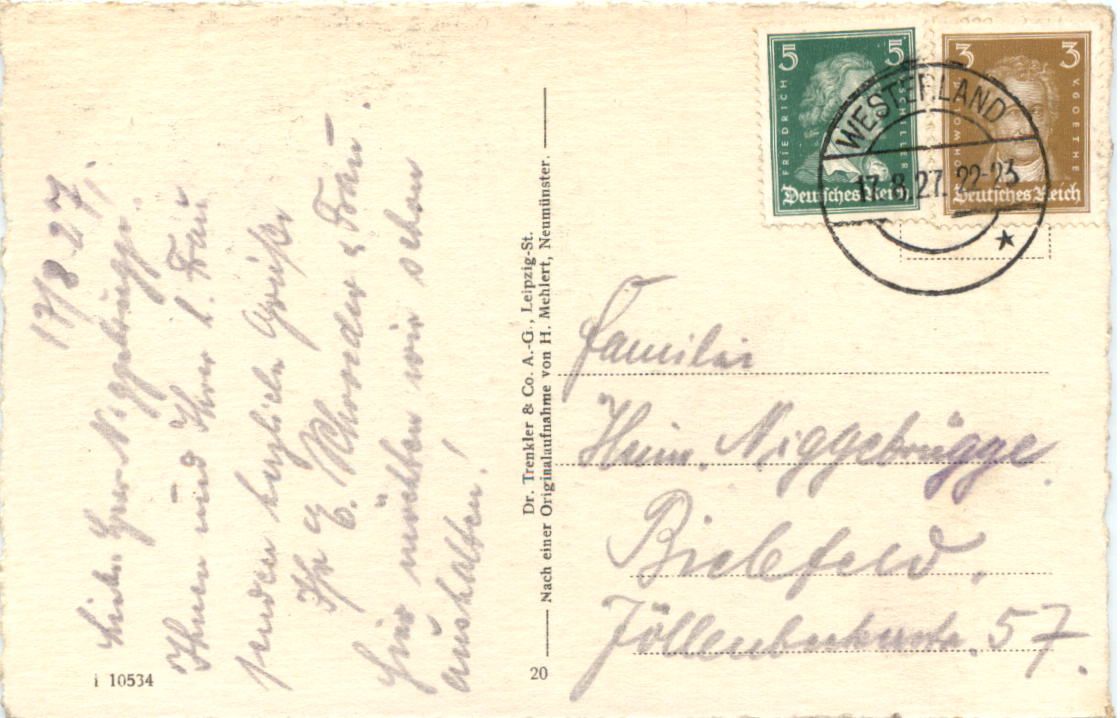 17/8.27.
Lieber Herr Niggebrügge.
Ihnen und Ihrer l. Frau
senden herzliche Grüße
Ihr E. Schroeder & Frau.
Hier möchten wir schon
aushalten!
I 10534
Dr. Trenkler & Co. A.-G., Leipzig-St.
Nach einer Originalaufnahme von H. Mehlert, Neumünster.
20
5 5
FRIEDRICH
SCHILLER
Deutsches Reich
3 3
V GOETHE
Deutsches Reich
WESTERLAND
17.8.27.22-23
Familie
Heinr. Niggebrügge
Bielefeld.
Jöllenbeckerstr. 57.